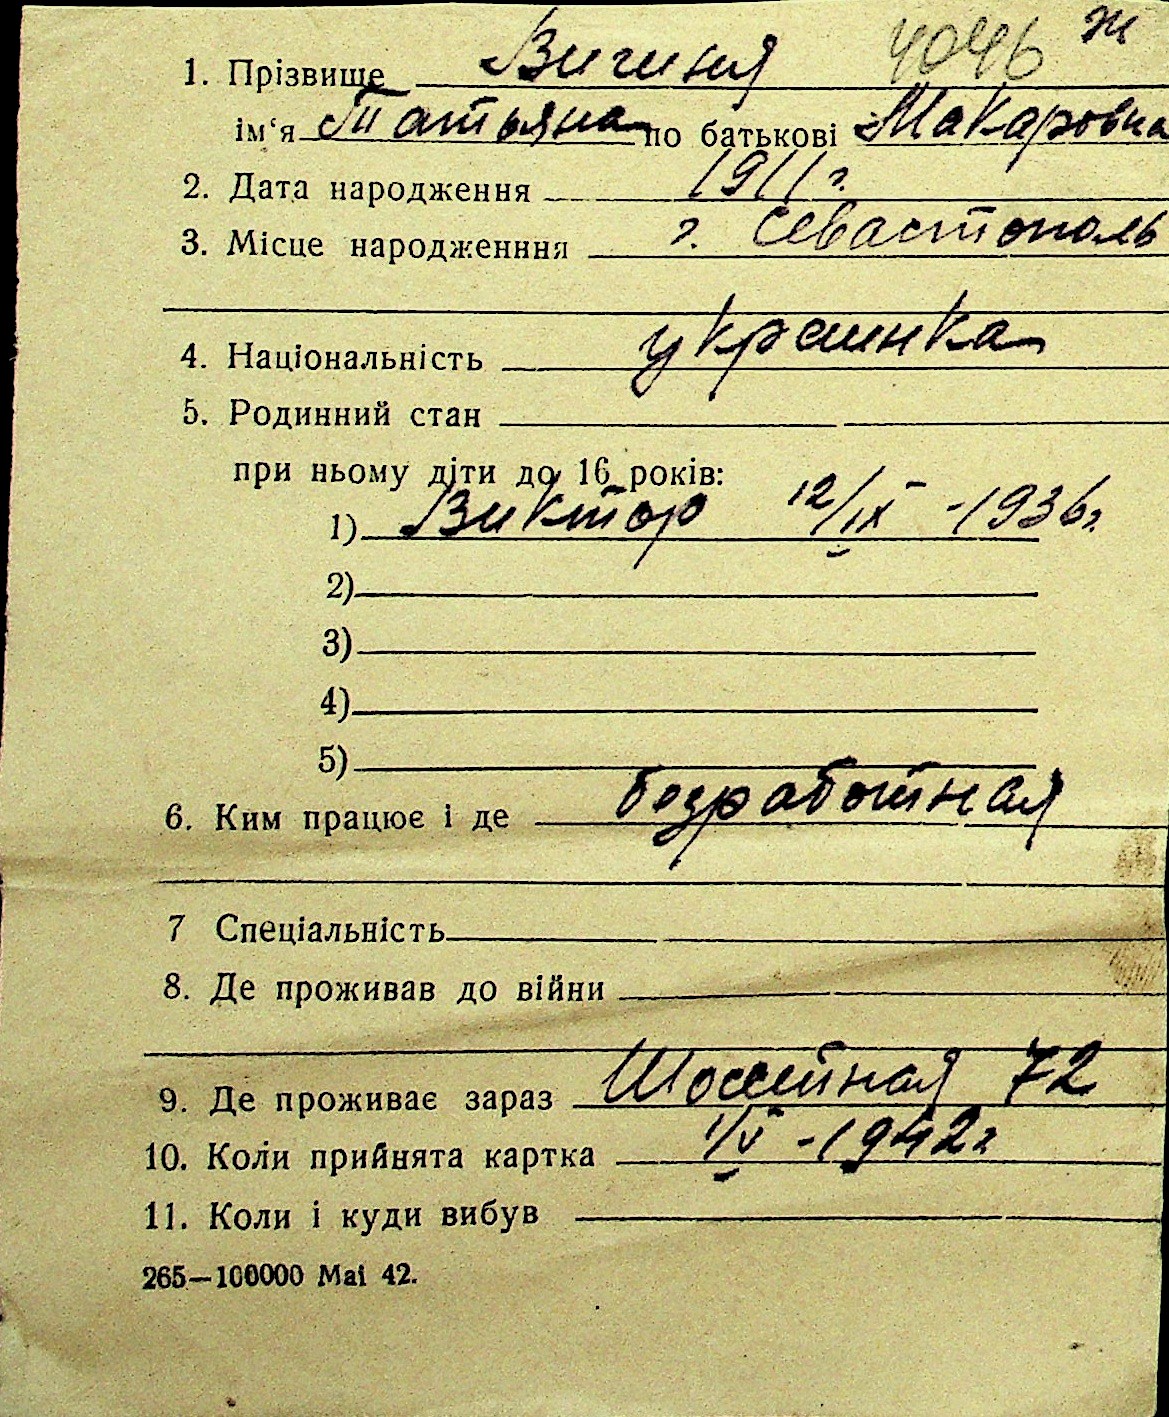 4046 Ж
1. Прізвище Вигиня
ім‘я Татьяна по батькові Макаровна
2. Дата народження 1911 г.
3. Місце народженння г. Севастополь
4. Національність украинка
5. Родинний стан
при ньому діти до 16 років:
1) Виктор 12/IX - 1936 г.
2)
3)
4)
5)
6. Ким працює і де безработная
7 Спеціальність
8. Де проживав до війни
9. Де проживає зараз Шоссейная 72
10. Коли прийнята картка 1/V - 1942 г
11. Коли і куди вибув
265—100000 Mai 42.